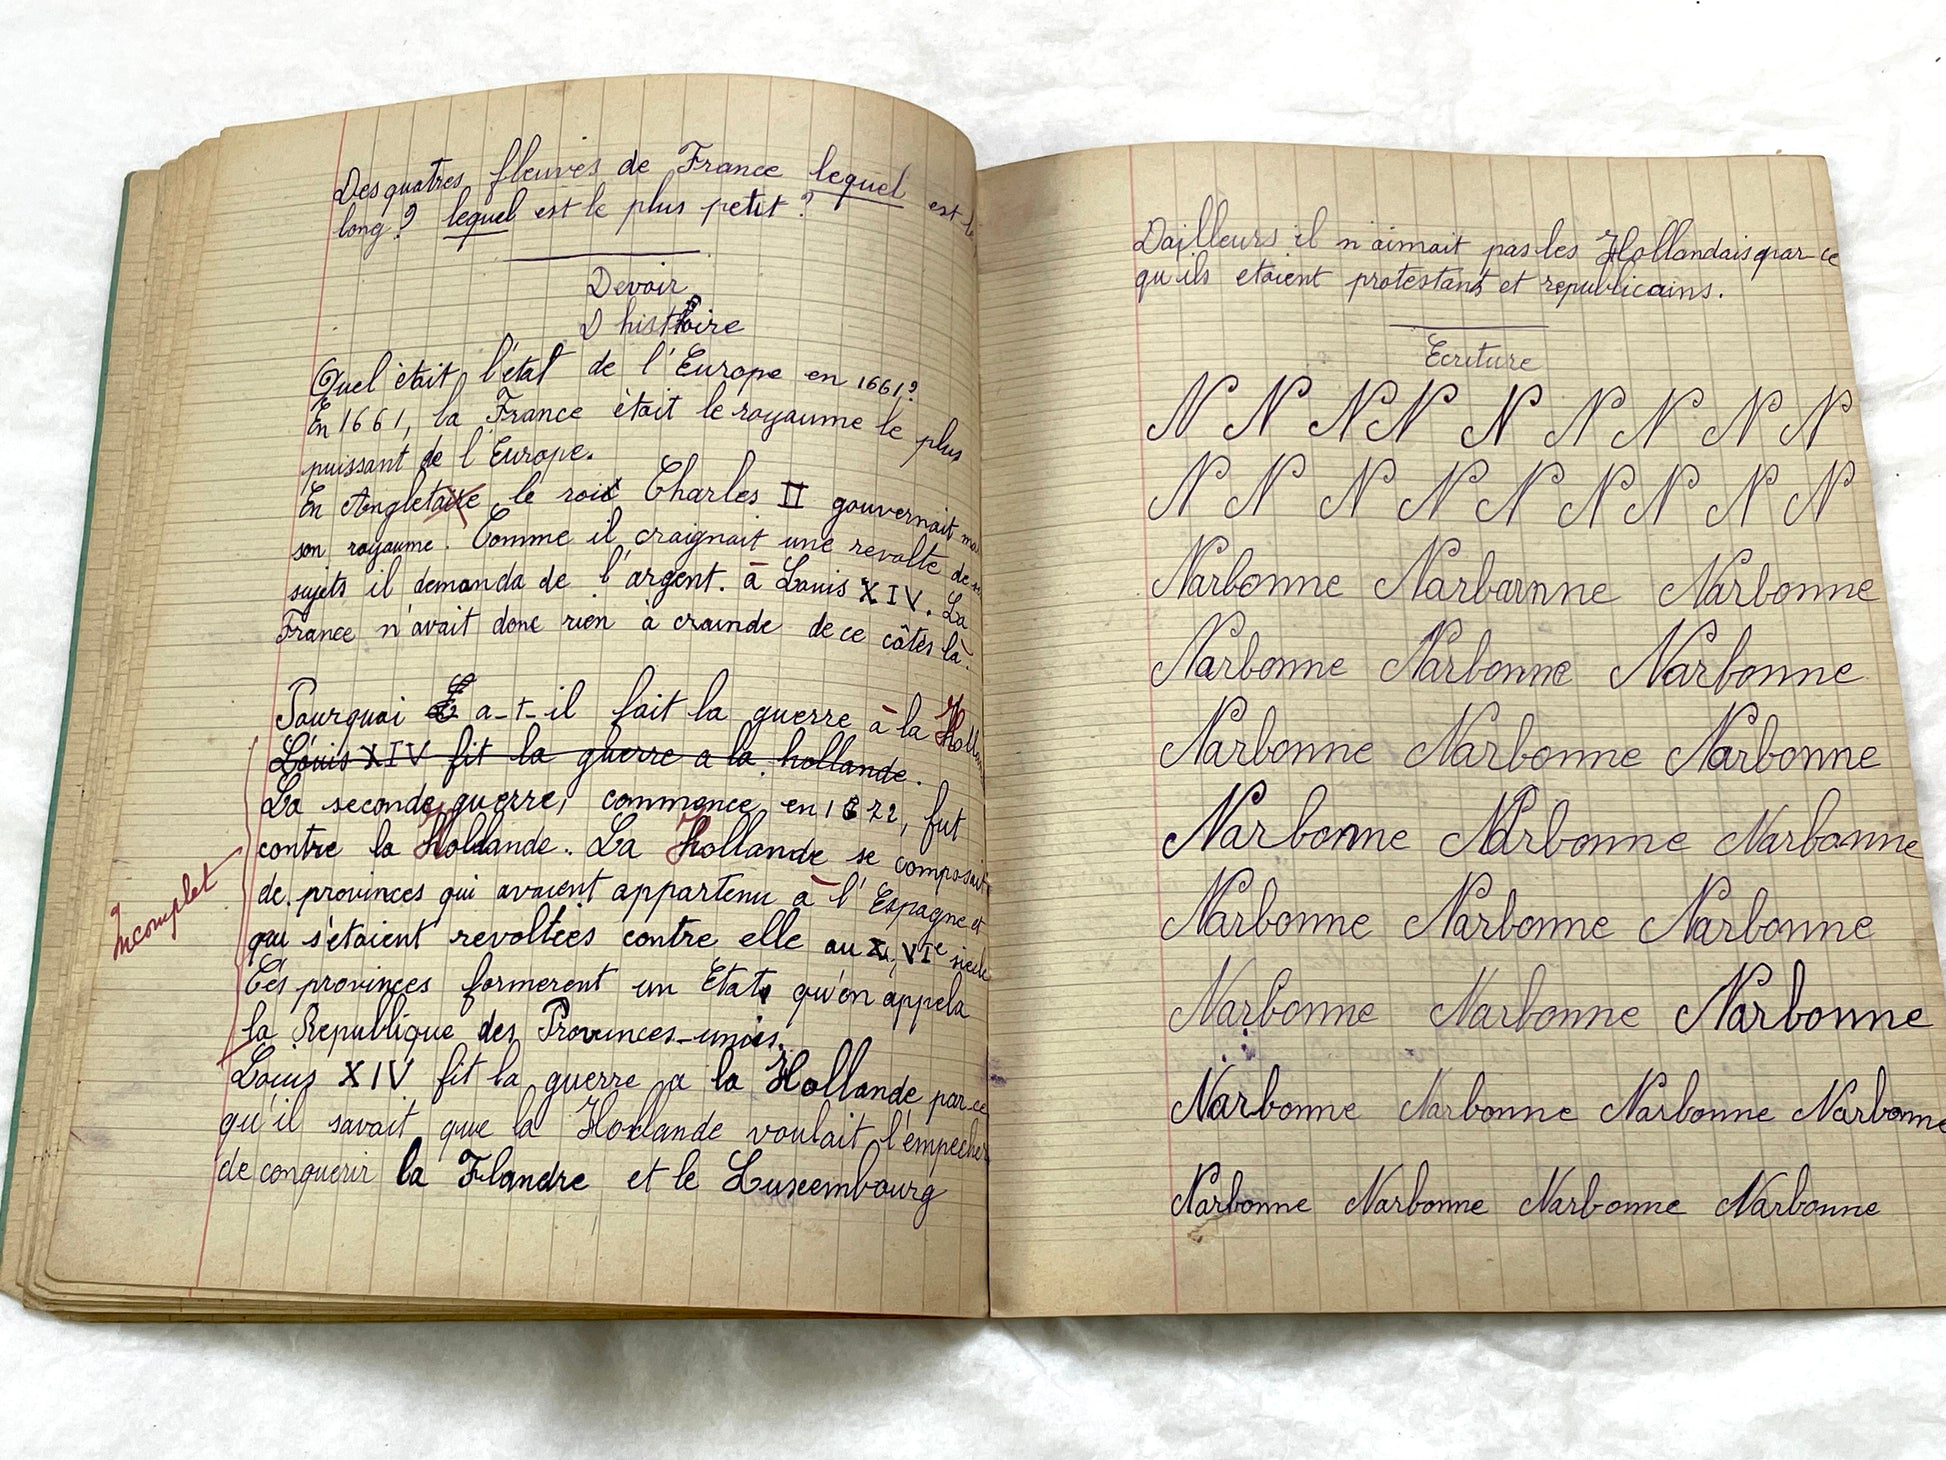 Des quatres fleuves de France lequel est le
long? lequel est le plus petit?
Devoir
D histoire
Quel ètait l'ètat de l'Europe en 1661?
En 1661, la France ètait le royaume le plus
puissant de l'Europe.
En Angletaire le roix Charles II gouvernait
son royaume. Comme il craignait une revolte de
sujets il demanda de l'argent. à Louis XIV. La
France n'avait donc rien à crainde de ce côtés là.
Pourquoi a-t-il fait la guerre à la Hollan
Louis XIV fit la guerre a la hollande.
La seconde guerre, commence en 1672, fut
contre la Hollande. La Hollande se composait
de provinces qui avaient appartenu à l'Espagne et
qui s'étaient revoltées contre elle au XVIe siècle
Ces provinces formerent un Etat qu'on appela
la Republique des Provinces-unies.
Incomplet
Louis XIV fit la guerre a la Hollande par-ce
qu'il savait que la Hollande voulait l'empecher
de conquerir la Flandre et le Luxembourg
Dailleurs il n'aimait pas les Hollandais par-ce
qu'ils etaient protestants et republicains.
Ecriture
N N N N N N N N N
N N N N N N N N N
Narbonne Narbonne Narbonne
Narbonne Narbonne Narbonne
Narbonne Narbonne Narbonne
Narbonne Narbonne Narbonne
Narbonne Narbonne Narbonne
Narbonne Narbonne Narbonne
Narbonne Narbonne Narbonne Narbonne
Narbonne Narbonne Narbonne Narbonne